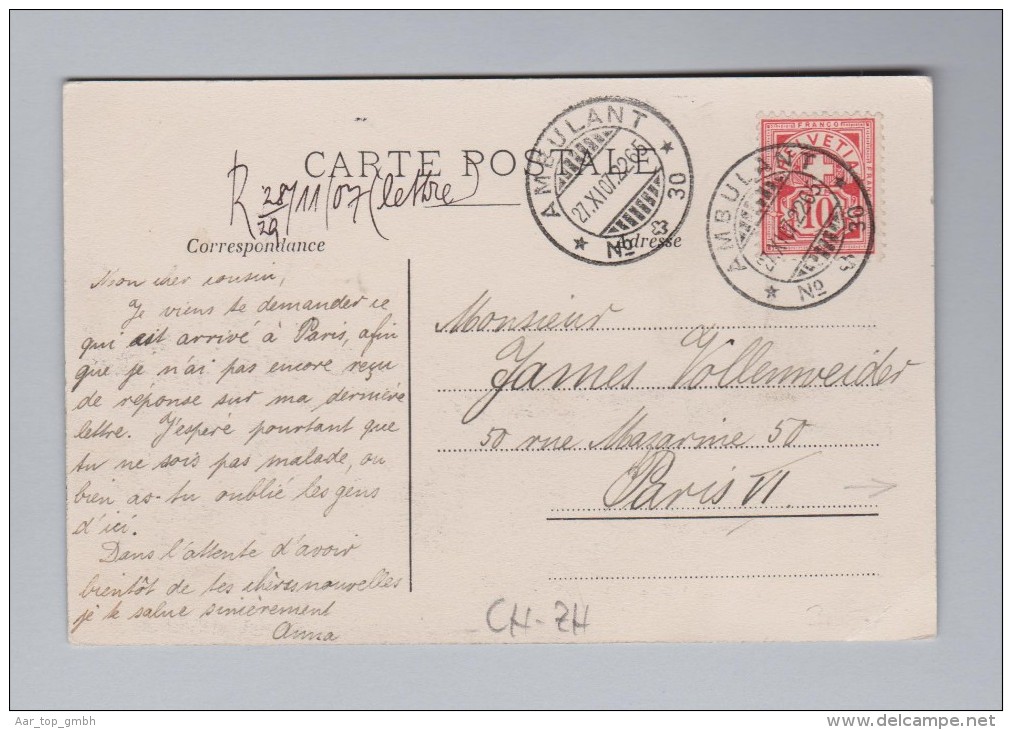 CARTE POSTALE
R 28/29/11/07 (lettre)
Correspondance
Adresse
AMBULANT
27.XI.07.2265
No 30
FRANCO
HELVETIA
10
AMBULANT
No 30
Mon cher cousin,
Je viens te demander ce
qui ait arrivé à Paris, afin
que je n'ai pas encore reçu
de réponse sur ma dernière
lettre. J'espére pourtant que
tu ne sois pas malade, ou
bien as-tu oublié les gens
d'ici.
Dans l'attente d'avoir
bientôt de tes chères nouvelles
je te salue sincèrement
Anna
Monsieur
James Vollenweider
50 rue Mazarine 50
Paris VI
CH-ZH
Aar_top_gmbh
www.delcampe.net